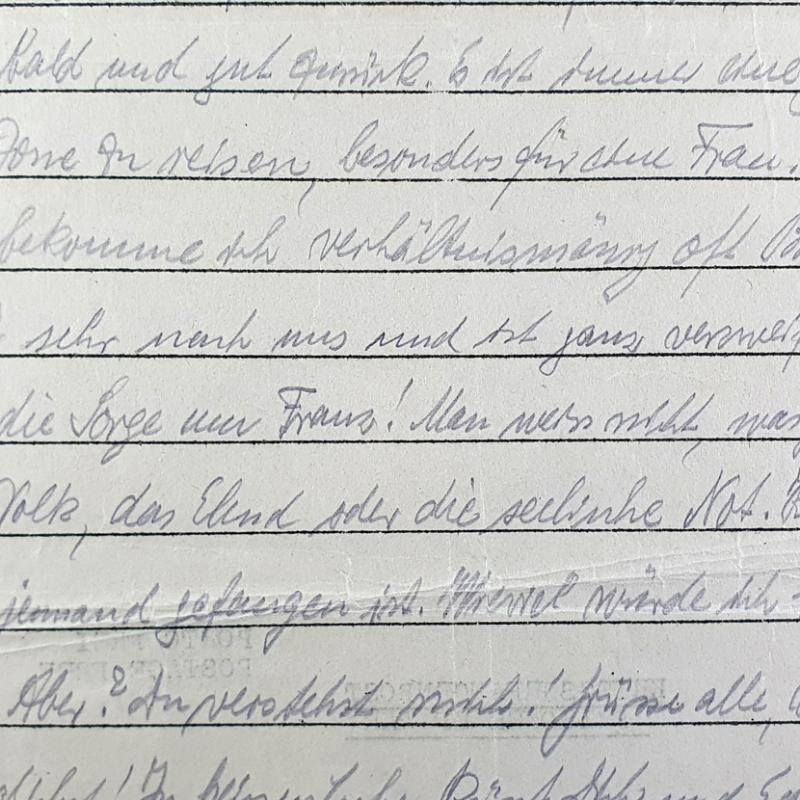 bald und gut zurück. Es ist immer eine
Zone zu reisen, besonders für eine Frau.
bekomme ich verhältnismässig oft
sehr nach uns und ist ganz verzweif
die Sorge um Franz! Man weiss nicht, was
Volk, das Elend oder die seelische Not.
jemand gefangen ist. Wieviel würde ich
Aber? Du verstehst mich! Grüsse alle,
POSTAGE FREE
KRIEGSGEFANGENENPOST
und